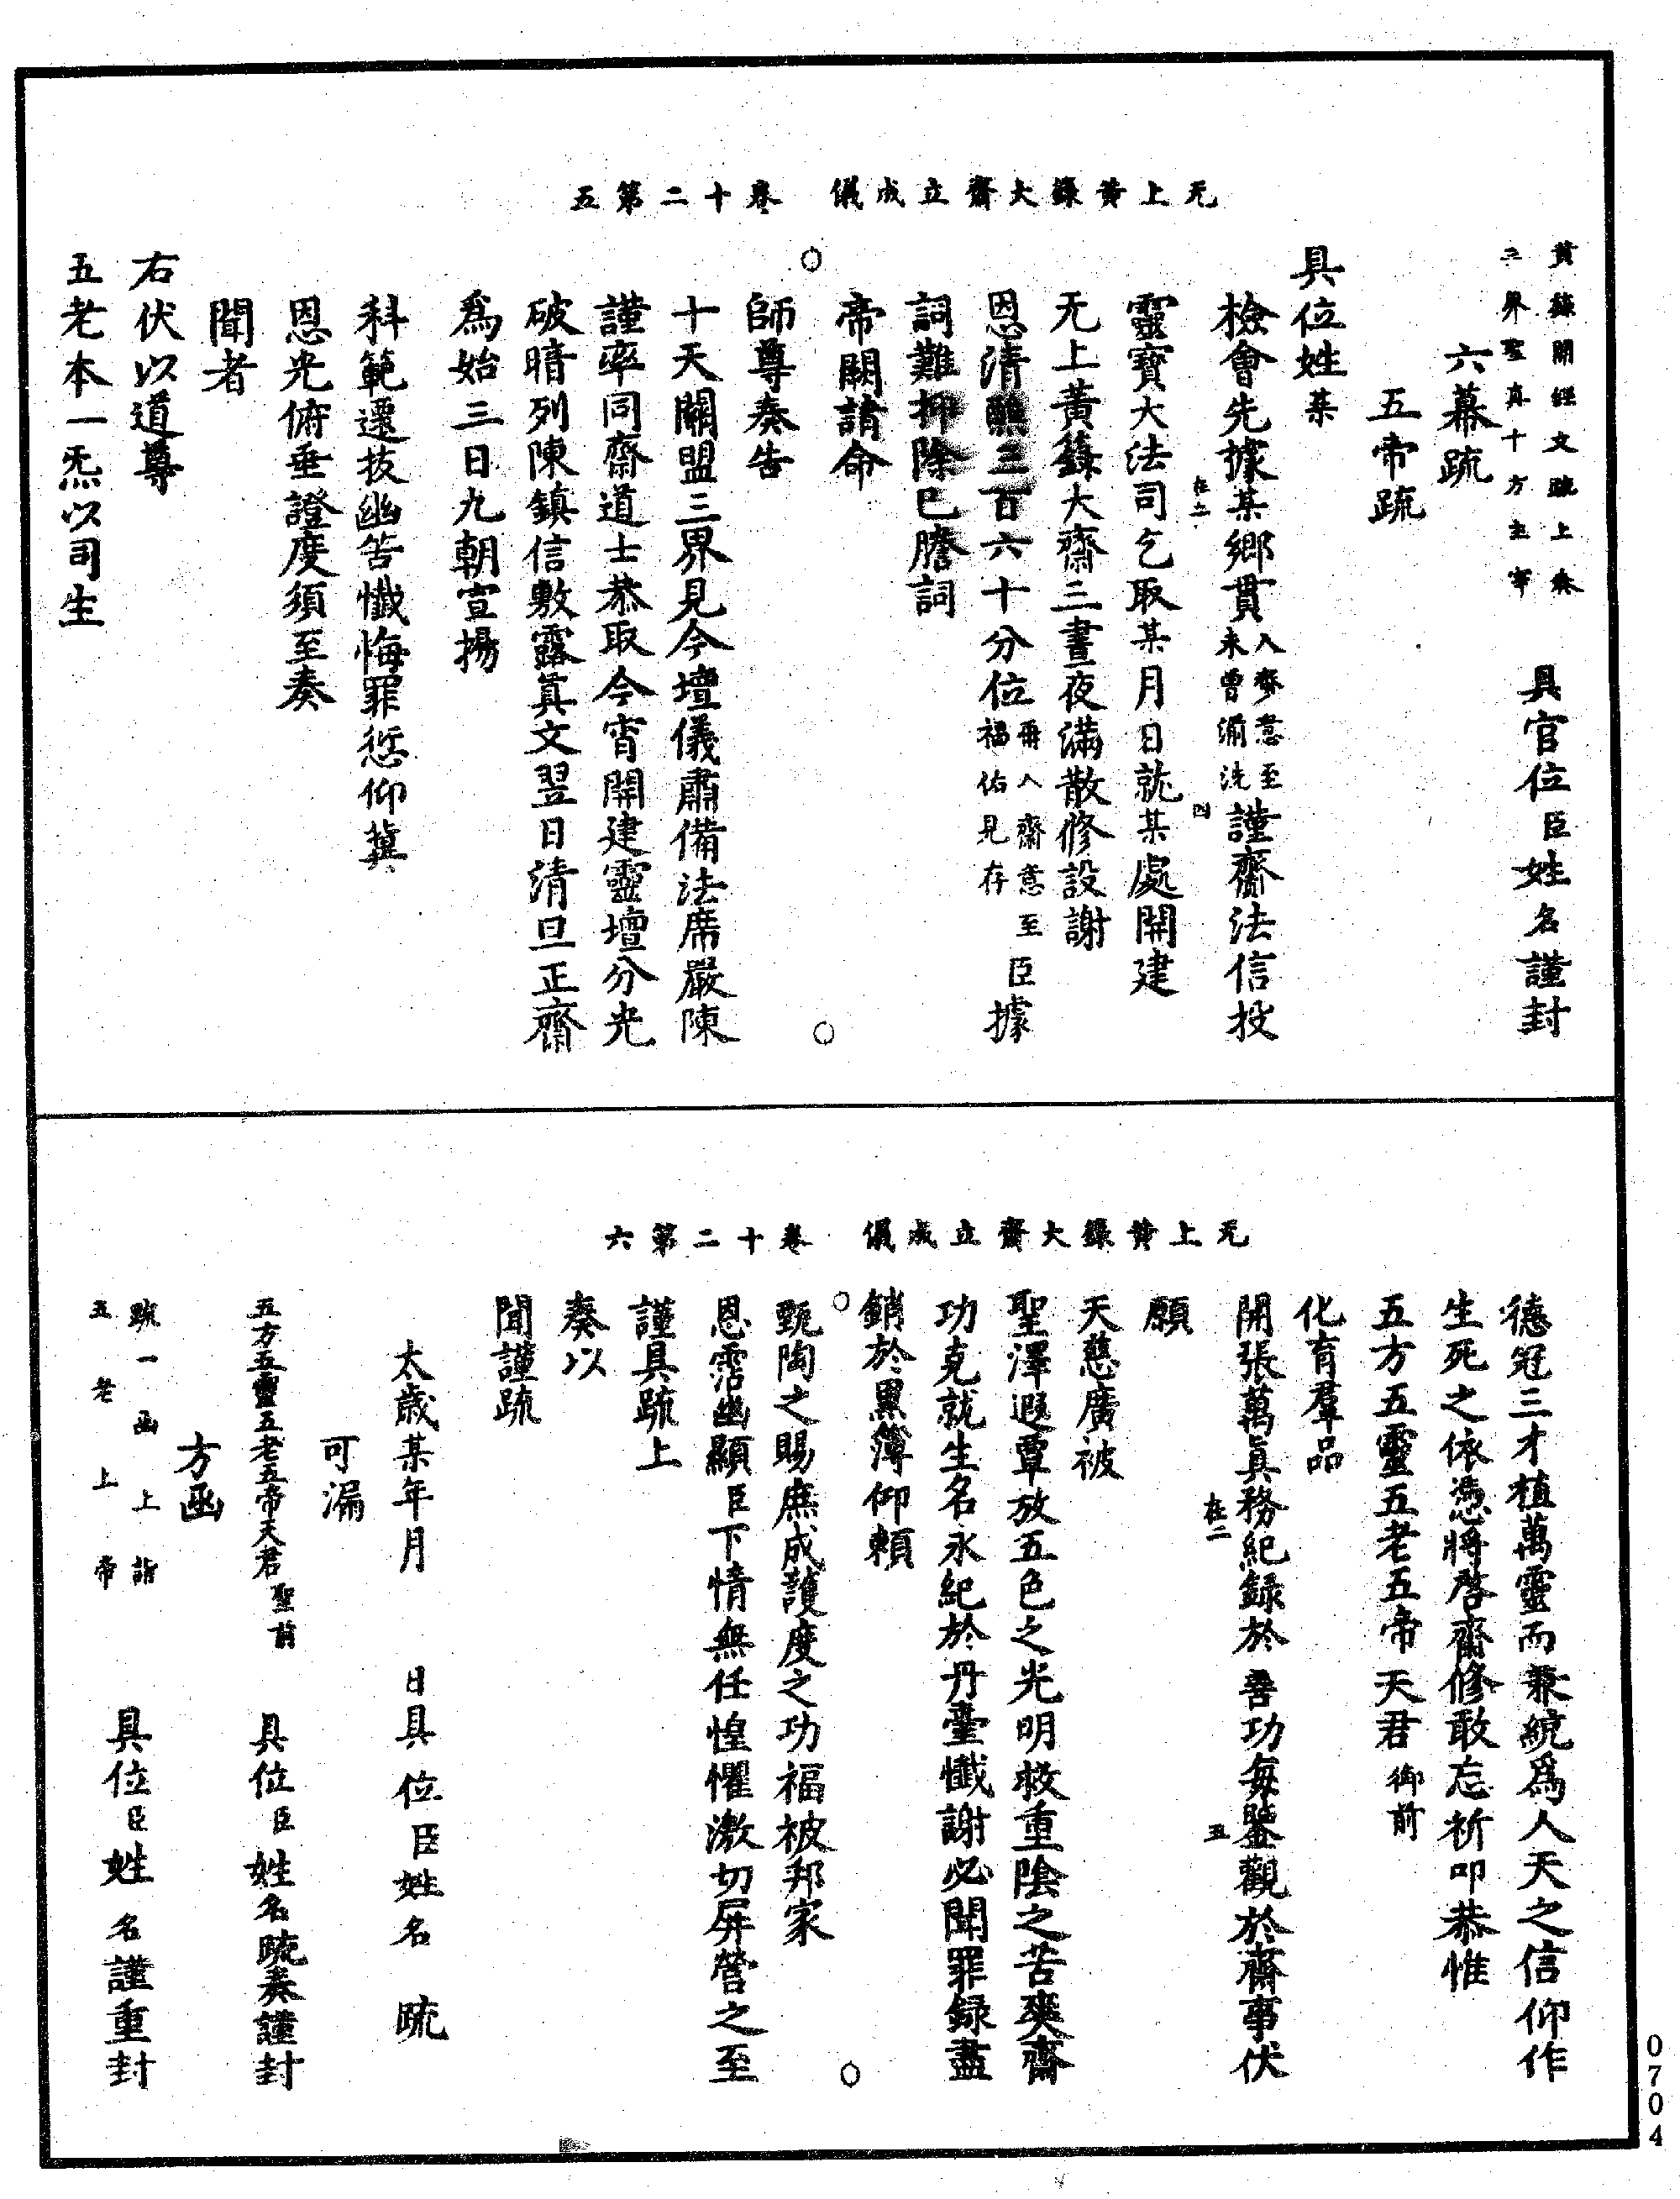 无上黃籙大齋立成儀 卷十二第五
黃籙開經文疏上奏
三界聖真十方主宰 具官位臣姓名謹封
六幕疏
五帝疏
具位姓某
檢會先據某鄉貫入齋意至未曾湔洗謹齋法信投
在二 四
靈寶大法司乞取某月日就某處開建
无上黃籙大齋三晝夜滿散修設謝
恩清醮三百六十分位再入齋意至福佑見存臣據
詞難抑除已謄詞
帝闕請命
師尊奏告
十天關盟三界見今壇儀肅備法席嚴陳
謹率同齋道士恭取今宵開建靈壇分光
破暗列陳鎮信敷露真文翌日清旦正齋
爲始三日九朝宣揚
科範還拔幽苦懺悔罪愆仰冀
恩光俯垂證度須至奏
聞者
右伏以道尊
五老本一炁以司生
无上黃籙大齋立成儀 卷十二第六
德冠三才植萬靈而兼統爲人天之信仰作
生死之依憑將啓齋修敢忘祈叩恭惟
五方五靈五老五帝天君御前
化育羣品
開張萬眞務紀録於善功每鑒觀於齋事伏
在二 五
願
天慈廣被
聖澤遐覃放五色之光明救重陰之苦爽齋
功克就生名永紀於丹臺懺謝必聞罪録盡
銷於黑簿仰賴
甄陶之賜庶成護度之功福被邦家
恩霑幽顯臣下情無任惶懼激切屏營之至
謹具疏上
奏以
聞謹疏
太歲某年月 日具位臣姓名 疏
可漏
五方五靈五老五帝天君聖前 具位臣姓名疏奏謹封
方函
疏一函上詣
五老上帝 具位臣姓名謹重封
0704